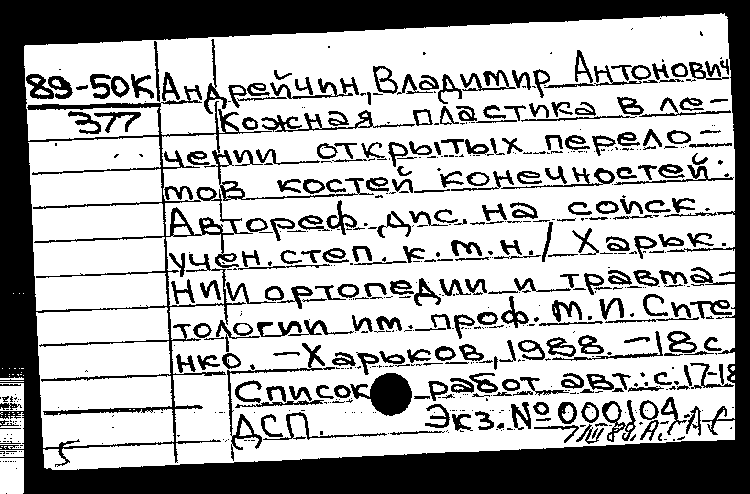 89-50К Андрейчин, Владимир Антонович
377 Кожная пластика в ле-
чении открытых перело-
мов костей конечностей:
Автореф. дис. на соиск.
учен. степ. к. м. н. / Харьк.
НИИ ортопедии и травма-
тологии им. проф. М. И. Сите
нко. – Харьков, 1988. – 18 с.
Список работ авт.: с. 17-18
ДСП. Экз. № 000104.
5